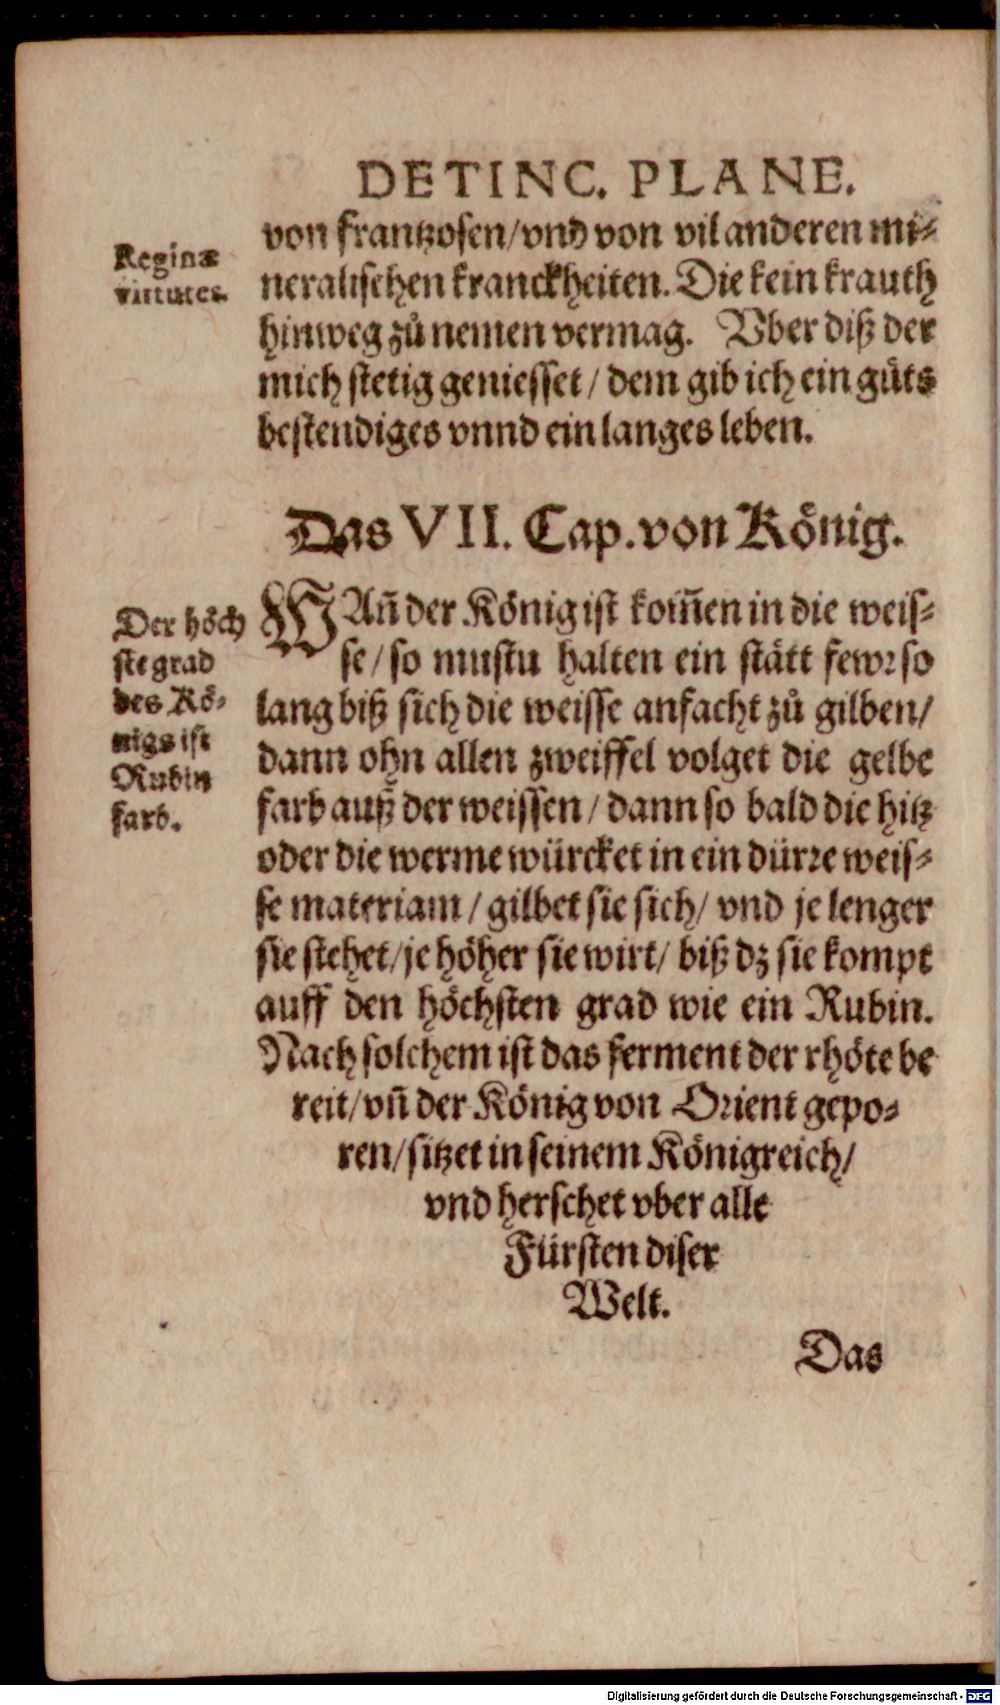 DE TINC. PLANE.
Reginæ
virtutes.
von frantzosen/vnd von vil anderen mi⸗
neralischen kranckheiten. Die kein krauth
hinweg zů nemen vermag. Vber diß der
mich stetig geniesset/ dem gib ich ein gůts
bestendiges vnnd ein langes leben.
Das VII. Cap. von König.
Der höch
ste grad
des Kö⸗
nigs ist
Rubin
farb.
WAñ der König ist kom̃en in die weis⸗
se/ so mustu halten ein stätt fewr so
lang biß sich die weisse anfacht zů gilben/
dann ohn allen zweiffel volget die gelbe
farb auß der weissen/ dann so bald die hitz
oder die werme würcket in ein dürre weis⸗
se materiam/ gilbet sie sich/ vnd je lenger
sie stehet/je höher sie wirt/ biß dz sie kompt
auff den höchsten grad wie ein Rubin.
Nach solchem ist das ferment der rhöte be
reit/vñ der König von Orient gepo⸗
ren/sitzet in seinem Königreich/
vnd herschet vber alle
Fürsten diser
Welt.
Das
Digitalisierung gefördert durch die Deutsche Forschungsgemeinschaft - DFG